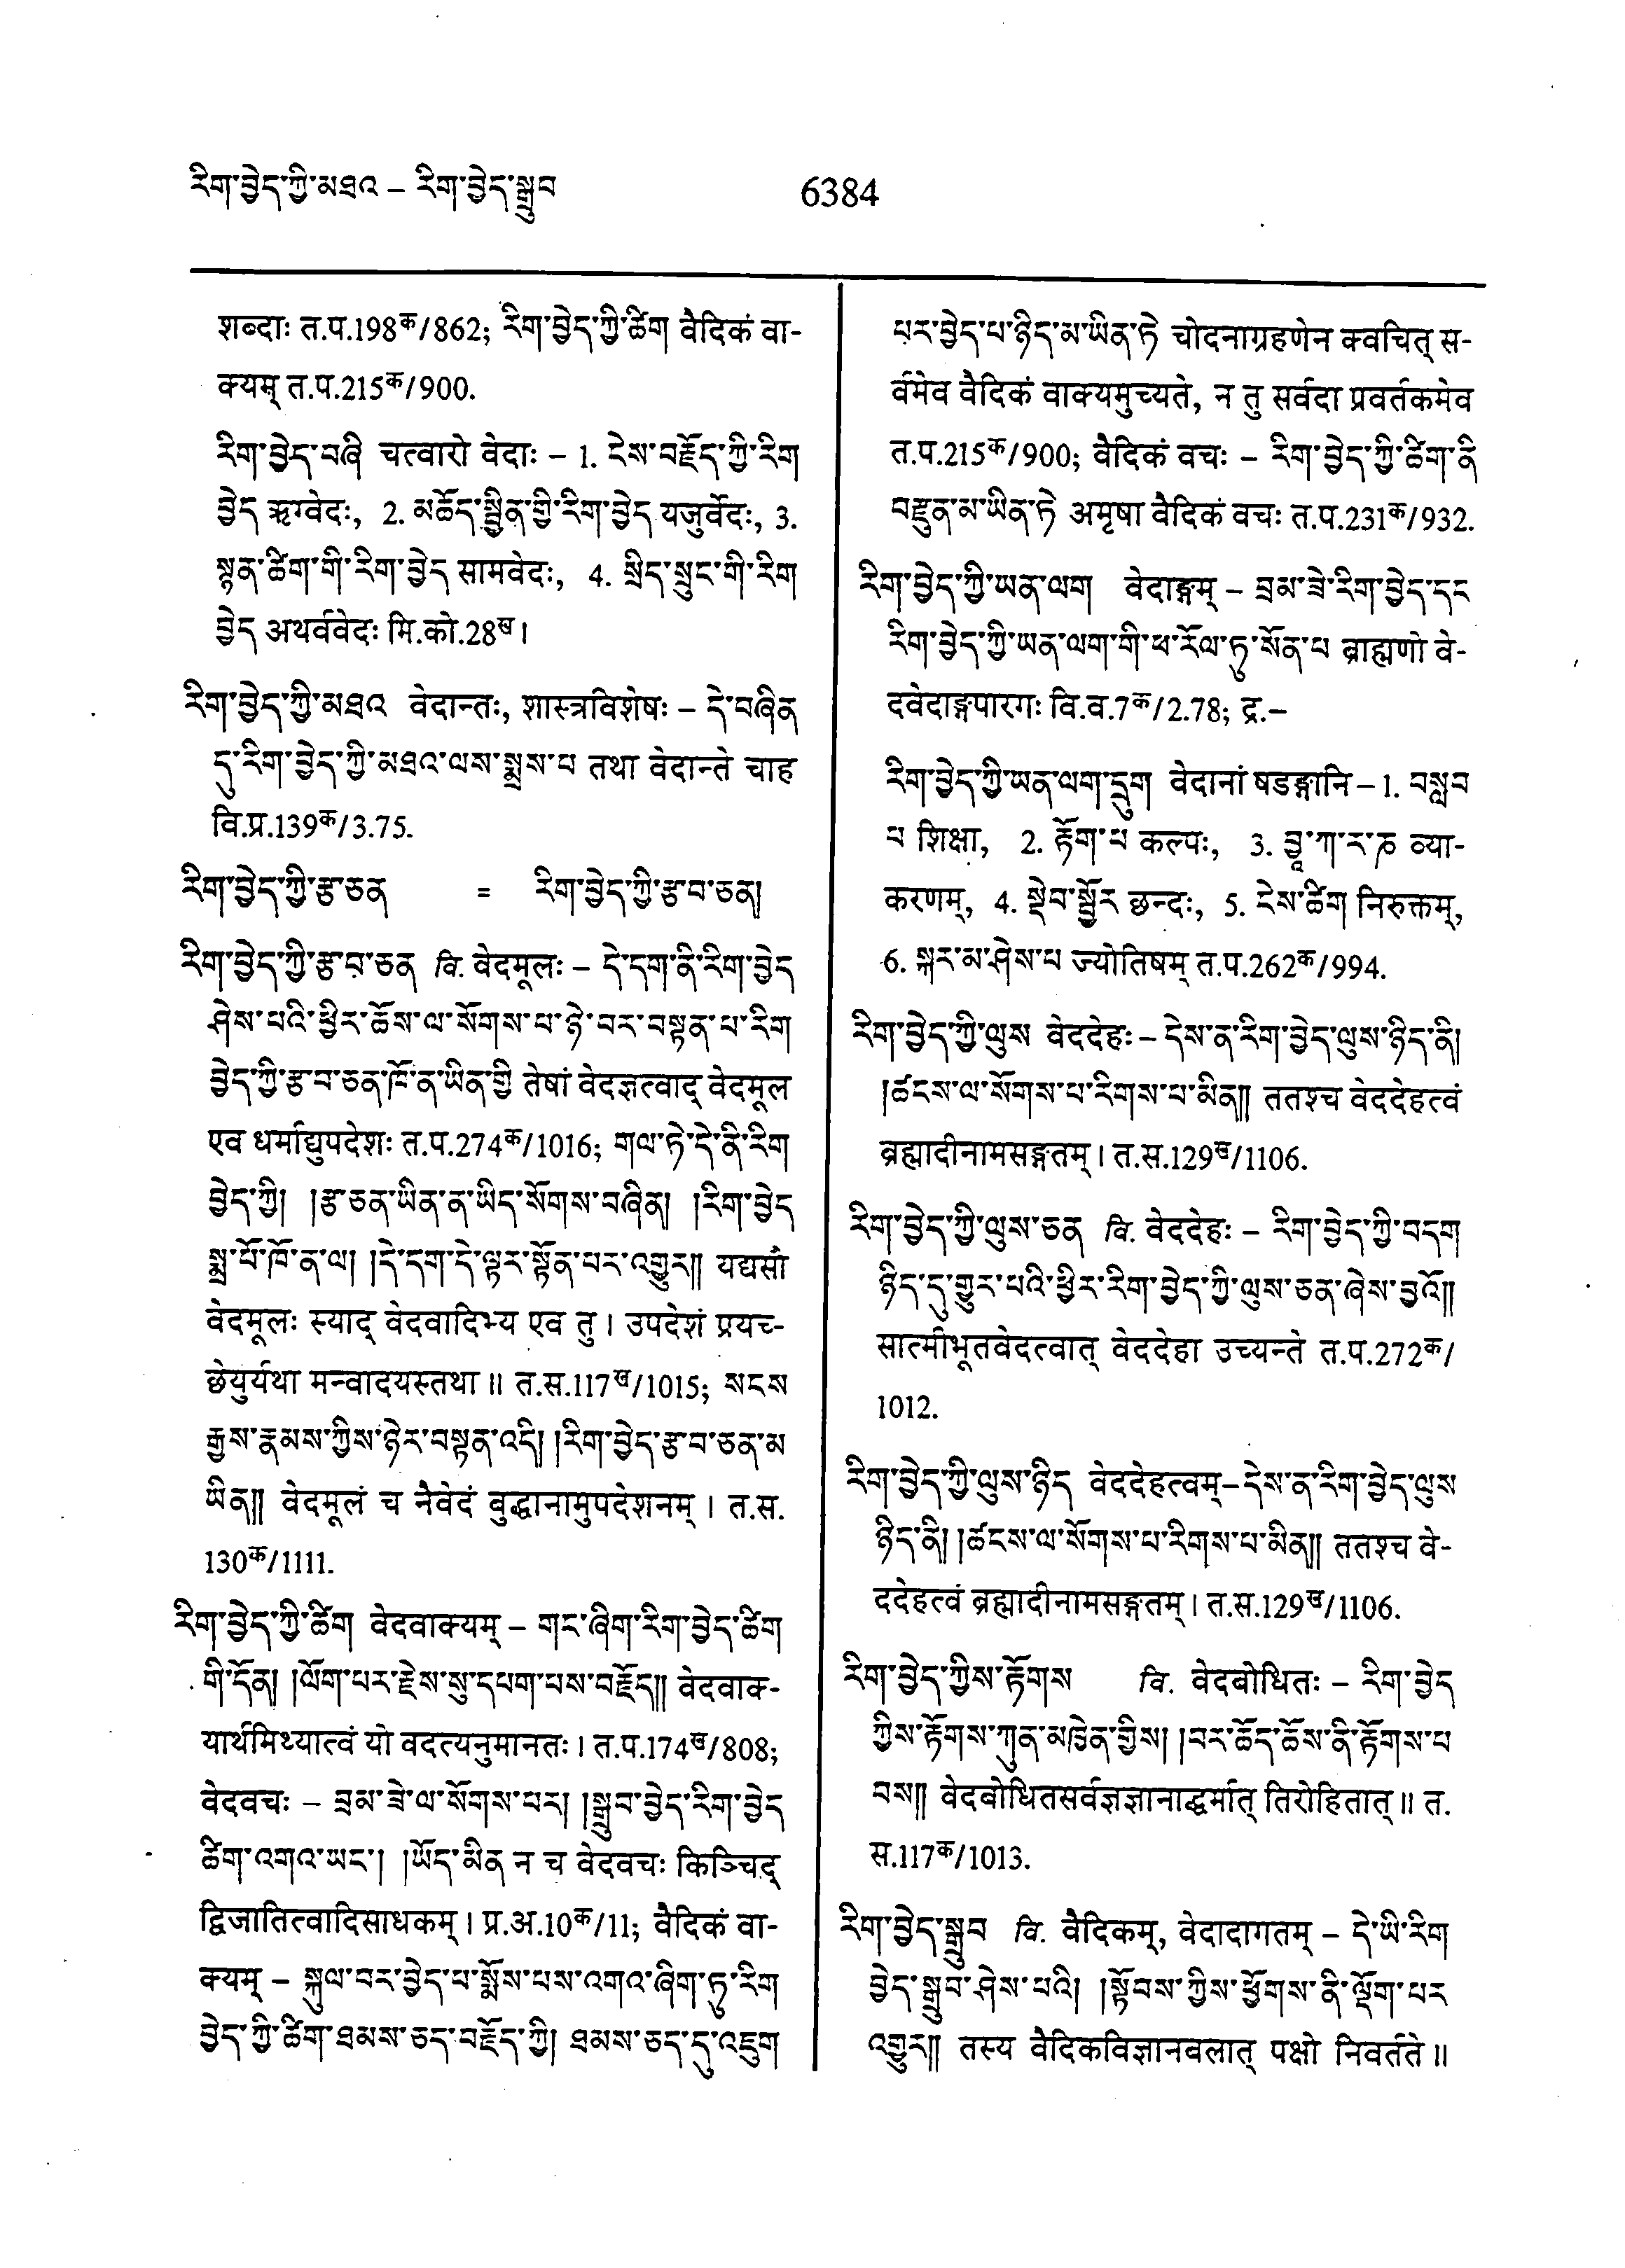 རིག་བྱེད་ཀྱི་མཐའ – རིག་བྱེད་སྒྲུབ
6384
शब्दाः त.प.198क/862; རིག་བྱེད་ཀྱི་ཚིག वैदिकं वा-
क्यम् त.प.215क/900.
རིག་བྱེད་བཞི चत्वारो वेदाः – 1. ངེས་བརྗོད་ཀྱི་རིག
བྱེད ऋग्वेदः, 2. མཆོད་སྦྱིན་གྱི་རིག་བྱེད यजुर्वेदः, 3.
སྙན་ཚིག་གི་རིག་བྱེད सामवेदः, 4. སྲིད་སྲུང་གི་རིག
བྱེད अथर्ववेदः मि.को.28ख।
རིག་བྱེད་ཀྱི་མཐའ वेदान्तः, शास्त्रविशेषः – དེ་བཞིན
དུ་རིག་བྱེད་ཀྱི་མཐའ་ལས་སྨྲས་པ तथा वेदान्ते चाह
वि.प्र.139क/3.75.
རིག་བྱེད་ཀྱི་རྩ་ཅན = རིག་བྱེད་ཀྱི་རྩ་བ་ཅན།
རིག་བྱེད་ཀྱི་རྩ་བ་ཅན वि. वेदमूलः – དེ་དག་ནི་རིག་བྱེད
ཤེས་པའི་ཕྱིར་ཆོས་ལ་སོགས་པ་ཉེ་བར་བསྟན་པ་རིག
བྱེད་ཀྱི་རྩ་བ་ཅན་ཁོ་ན་ཡིན་གྱི तेषां वेदज्ञत्वाद् वेदमूल
एव धर्माद्युपदेशः त.प.274क/1016; གལ་ཏེ་དེ་ནི་རིག
བྱེད་ཀྱི། །རྩ་ཅན་ཡིན་ན་ཡིད་སོགས་བཞིན། །རིག་བྱེད
སྨྲ་པོ་ཁོ་ན་ལ། །དེ་དག་དེ་ལྟར་སྟོན་པར་འགྱུར།། यद्यसौ
वेदमूलः स्याद् वेदवादिभ्य एव तु । उपदेशं प्रयच्-
छेयुर्यथा मन्वादयस्तथा ॥ त.स.117ख/1015; སངས
རྒྱས་རྣམས་ཀྱིས་ཉེར་བསྟན་འདི། །རིག་བྱེད་རྩ་བ་ཅན་མ
ཡིན།། वेदमूलं च नैवेदं बुद्धानामुपदेशनम् । त.स.
130क/1111.
རིག་བྱེད་ཀྱི་ཚིག वेदवाक्यम् – གང་ཞིག་རིག་བྱེད་ཚིག
གི་དོན། །ལོག་པར་རྗེས་སུ་དཔག་པས་བརྗོད།། वेदवाक-
यार्थमिथ्यात्वं यो वदत्यनुमानतः । त.प.174ख/808;
वेदवचः – བྲམ་ཟེ་ལ་སོགས་པར། །སྒྲུབ་བྱེད་རིག་བྱེད
ཚིག་འགའ་ཡང་། །ཡོད་མིན न च वेदवचः किञ्चिद्
द्विजातित्वादिसाधकम् । प्र.अ.10क/11; वैदिकं वा-
क्यम् – སྐུལ་བར་བྱེད་པ་སྨོས་པས་འགའ་ཞིག་ཏུ་རིག
བྱེད་ཀྱི་ཚིག་ཐམས་ཅད་བརྗོད་ཀྱི། ཐམས་ཅད་དུ་འཇུག
པར་བྱེད་པ་ཉིད་མ་ཡིན་ཏེ चोदनाग्रहणेन क्वचित् स-
र्वमेव वैदिकं वाक्यमुच्यते, न तु सर्वदा प्रवर्तकमेव
त.प.215क/900; वैदिकं वचः – རིག་བྱེད་ཀྱི་ཚིག་ནི
བརྫུན་མ་ཡིན་ཏེ अमृषा वैदिकं वचः त.प.231क/932.
རིག་བྱེད་ཀྱི་ཡན་ལག वेदाङ्गम् – བྲམ་ཟེ་རིག་བྱེད་དང
རིག་བྱེད་ཀྱི་ཡན་ལག་གི་ཕ་རོལ་ཏུ་སོན་པ ब्राह्मणो वे-
दवेदाङ्गपारगः वि.व.7क/2.78; द्र.–
རིག་བྱེད་ཀྱི་ཡན་ལག་དྲུག वेदानां षडङ्गानि – 1. བསླབ
པ शिक्षा, 2. རྟོག་པ कल्पः, 3. བྱཱ་ཀ་ར་ཎ व्या-
करणम्, 4. སྡེབ་སྦྱོར छन्दः, 5. ངེས་ཚིག निरुक्तम्,
6. སྐར་མ་ཤེས་པ ज्योतिषम् त.प.262क/994.
རིག་བྱེད་ཀྱི་ལུས वेददेहः – དེས་ན་རིག་བྱེད་ལུས་ཉིད་ནི།
།ཚངས་ལ་སོགས་པ་རིགས་པ་མིན།། ततश्च वेददेहत्वं
ब्रह्मादीनामसङ्गतम् । त.स.129ख/1106.
རིག་བྱེད་ཀྱི་ལུས་ཅན वि. वेददेहः – རིག་བྱེད་ཀྱི་བདག
ཉིད་དུ་གྱུར་པའི་ཕྱིར་རིག་བྱེད་ཀྱི་ལུས་ཅན་ཞེས་བྱའོ།།
सात्मीभूतवेदत्वात् वेददेहा उच्यन्ते त.प.272क/
1012.
རིག་བྱེད་ཀྱི་ལུས་ཉིད वेददेहत्वम्–དེས་ན་རིག་བྱེད་ལུས
ཉིད་ནི། །ཚངས་ལ་སོགས་པ་རིགས་པ་མིན།། ततश्च वे-
ददेहत्वं ब्रह्मादीनामसङ्गतम् । त.स.129ख/1106.
རིག་བྱེད་ཀྱིས་རྟོགས वि. वेदबोधितः – རིག་བྱེད
ཀྱིས་རྟོགས་ཀུན་མཁྱེན་གྱིས། །བར་ཆོད་ཆོས་ནི་རྟོགས་པ
བས།། वेदबोधितसर्वज्ञज्ञानाद्धर्मात् तिरोहितात् ॥ त.
स.117क/1013.
རིག་བྱེད་སྒྲུབ वि. वैदिकम्, वेदादागतम् – དེ་ཡི་རིག
བྱེད་སྒྲུབ་ཤེས་པའི། །སྟོབས་ཀྱིས་ཕྱོགས་ནི་ལྡོག་པར
འགྱུར།། तस्य वैदिकविज्ञानबलात् पक्षो निवर्तते ॥